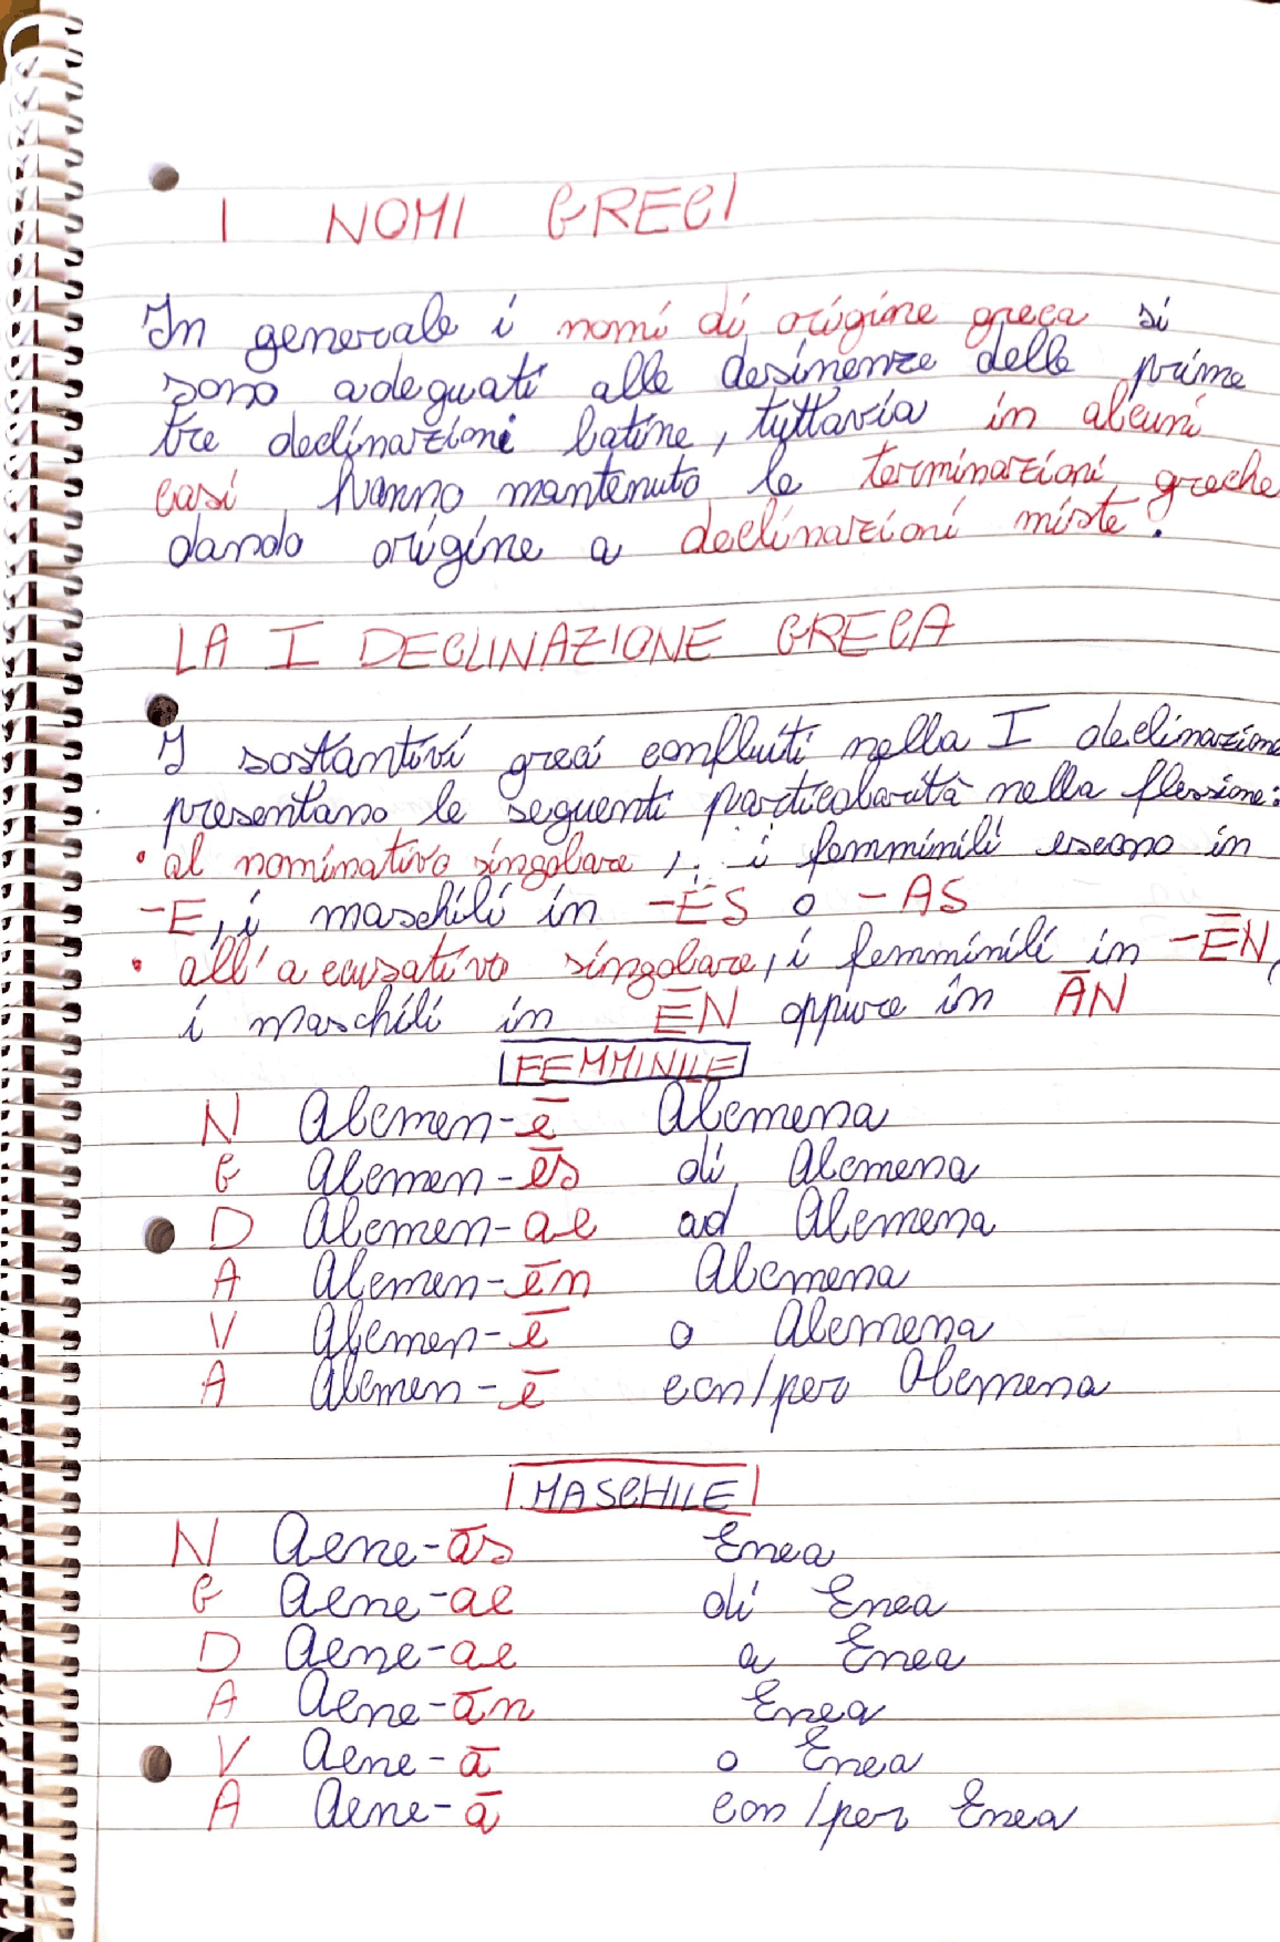 I NOMI GRECI
In generale i nomi di origine greca si
sono adeguati alle desinenze delle prime
tre declinazioni latine, tuttavia in alcuni
casi hanno mantenuto le terminazioni greche
dando origine a declinazioni miste.
LA I DECLINAZIONE GRECA
I sostantivi greci confluiti nella I declinazione
presentano le seguenti particolarità nella flessione:
• al nominativo singolare, i femminili escono in
-E, i maschili in -ES o -AS
• all'accusativo singolare, i femminili in -ĒN,
i maschili in ĒN oppure in ĀN
FEMMINILE
N Alcmen-ē Alcmena
G Alcmen-ēs di Alcmena
D Alcmen-ae ad Alcmena
A Alcmen-ēn Alcmena
V Alcmen-ē o Alcmena
A Alcmen-ē con/per Alcmena
MASCHILE
N Aene-ās Enea
G Aene-ae di Enea
D Aene-ae a Enea
A Aene-ān Enea
V Aene-ā o Enea
A Aene-ā con/per Enea